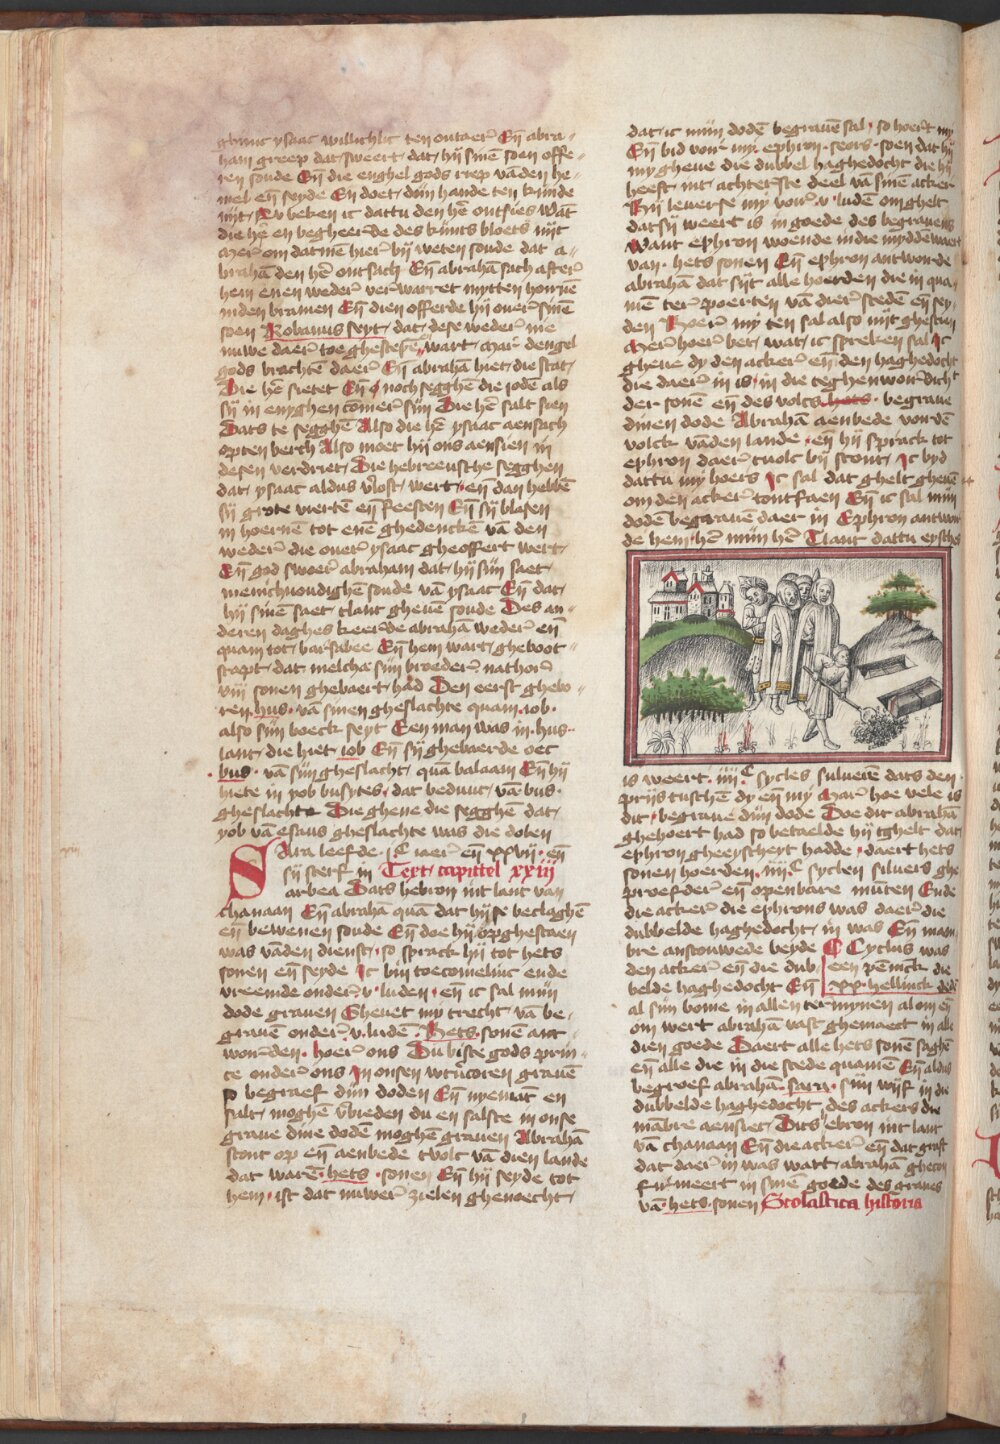 ghinc ysaac willichlic ten outaer Eñ abra-
ham greep dat sweert dat hij sinē soen offe-
ren soude Eñ die enghel gods riep vādēn he-
mel eñ seyde En doet dijn hande ten kinde
nijt Nv beken ic dattu den hēr ontsies Want
die hēr en begheerde des kints bloets nijt
Mer om datmē hier bij weten soude dat a-
brahā den hēr ontsach Eñ abrahā sach after
hem enen weder verwarret mytten hornen
inden bramen Eñ dien offerde hij ouer sinē
soen Robanus seyt dat dese weder nie
nuwe daer toe ghescepē wart mar dengel
gods brachten daer Eñ abrahā hiet die stat
Die hēr sietet Eñ noch segghē die iodē als
sij in enyghen comer sijn Die hēr salt sien
Dats te segghē Also die hēr ysaac aensach
opten berch Also moet hij ons aensien in
desen verdriet Die hebreeusche segghen
dat ysaac aldus vlost wert eñ dan hebbē
sij grote vierten eñ feesten Eñ sij blasen
in hoernē tot enē ghedenckē vā den
weder die ouer ysaac gheoffert wert
Eñ god swoer abraham dat hij sijn saet
menichuoudighē soude vā ysaac Eñ dat
hij sinē saet tlant gheuē soude Des an-
deren daghes keerde abrahā weder eñ
quam tot barsabee Eñ hem wart gheboot-
scapt dat melcha sijn broeder nathor
viij sonen ghebaert had Den eerst ghebo-
ren hus vā sinen gheslachte quam iob
also sijn boeck seyt Een man was in hus
lant die hiet iob Eñ sij ghebaerde oec
bus vā sijn gheslacht quā balaam Eñ hij
hiete in yob busytes dat beduut vā bus
gheslachte Die ghene die segghē dat
yob vā esaus gheslachte was die dolen
Sara leefde i c iaer eñ xxvij eñ
sij sterf in Text capittel xxiij
arbea Dats hebron int lant van
chanaan Eñ abrahā quā dat hijse beclaghē
eñ bewenen soude Eñ doe hij opghestaen
was vāden dienst so sprack hij tot hets
sonen eñ seyde Ic bin toecomelinc ende
vreemde onder v luden eñ ic sal mijn
dode grauen Gheuet my trecht vā be-
grauē onder v ludē Hets sonē ant-
worden hoer ons Du biste gods prin-
ce onder ons In onsen wtvcoren grauē
so begraef dijn doden Eñ nyemāt en
salt moghē vbieden du en salste in onse
graue dine dodē moghē grauen Abrahā
stont op eñ aenbede tvolc vā dien lande
dat warē hets sonen Eñ hij seyde tot
hem ist dat nuwer zielen ghenoecht
dat ic mijn dodē begrauē sal so hoert my
Eñ bid voer my ephron seors soen dat hij
my gheue die dubbel haghedocht die hij
heeft int achterste deel vā sinē acker
Hij leuerse my voer v luden om ghelt
dat sij weert is in goede des begrauens
Want ephron woende in die middewaert
van hets sonen Eñ ephron antworde
abrahā dat sijt alle hoerden die in qua-
men ter poerten vā dier stedē eñ sey-
den Hoer my ten sal also nijt ghescien
Mer hoer bet wat ic spreken sal Ic
gheue dy den acker eñ den haghedocht
die daer in is in die teghenwordich
der sonē eñ des volcs hets begraue
dinen dode Abrahā aenbede vor dē
volck vāden lande eñ hij sprack tot
ephron daer tuolc bij stont Ic byd
dattu my hoers Ic sal dat ghelt gheuē
om den acker tontfaen Eñ ic sal mijn
dodē begrauē daer in Ephron antwor
de hem hēr mijn hēr Tlant dattu eysches
is weert iiij c sycles suluerē dats den
prijs tuschē dy eñ my Mar hoe vele is
dit begraue dijn dode Doe dit abrahā
ghehoert had so betaelde hij tghelt dat
ephron gheeyschet hadde daert hets
sonen hoerden iiij c syclen siluers ghe
proefder eñ openbare munten Ende
die acker die ephrons was daer die
dubbelde haghedocht in was Eñ mam
bre anscouwede beyde C Cyclus was
den acker eñ die dub een pēninck die
belde haghedocht Eñ xx hellinck dede
al sijn bome in allen termynen alom eñ
om wert abrahā vast ghemaect in alle
dien goede Daert alle hets sonē saghē
eñ alle die in die stede quamē Eñ aldus
begroef abrahā sara sijn wijf in die
dubbelde haghedocht des ackers die
mābre aensiet Dits ebron int lant
vā chanaan Eñ die acker eñ dat graft
dat daer in was wart abrahā ghecon
firmeert in sinē goede des graues
vā hets sonen Scolastica historia